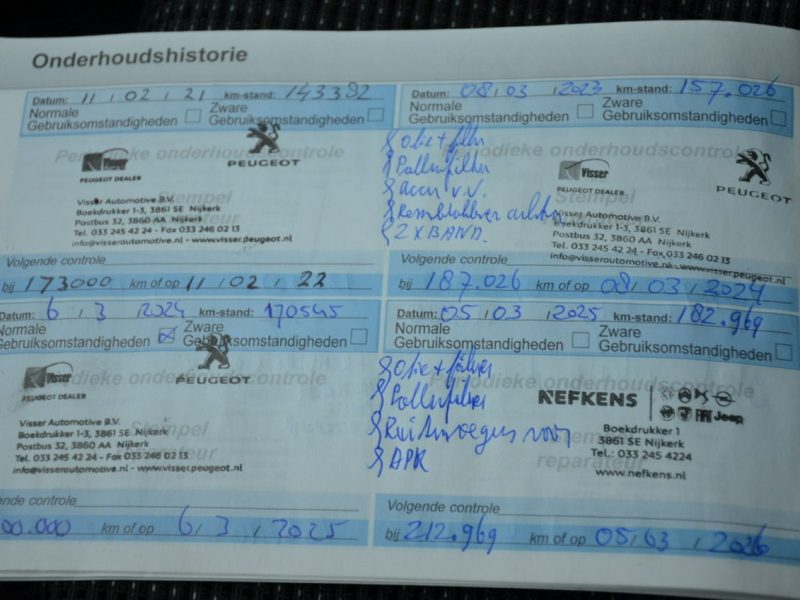 Onderhoudshistorie
Datum: 11 / 02 / 21 km-stand: 143382
Normale Gebruiksomstandigheden Zware Gebruiksomstandigheden
Periodieke onderhoudscontrole
PEUGEOT
Visser
PEUGEOT DEALER
Stempel
reparateur
Visser Automotive B.V.
Boekdrukker 1-3, 3861 SE Nijkerk
Postbus 32, 3860 AA Nijkerk
Tel. 033 245 42 24 - Fax 033 246 02 13
info@visserautomotive.nl - www.visser.peugeot.nl
Volgende controle
bij 173000 km of op 11 / 02 / 22
Datum: 08 / 03 / 2023 km-stand: 157.026
Normale Gebruiksomstandigheden Zware Gebruiksomstandigheden
Periodieke onderhoudscontrole
Olie + filter
Pollenfilter
accu v.v.
Remblokken achter
2 x BAND.
Visser
PEUGEOT DEALER
PEUGEOT
Stempel
Visser Automotive B.V.
Boekdrukker 1-3, 3861 SE Nijkerk
Postbus 32, 3860 AA Nijkerk
Tel. 033 245 42 24 - Fax 033 246 02 13
info@visserautomotive.nl - www.visser.peugeot.nl
Volgende controle
bij 187.026 km of op 08 / 03 / 2024
Datum: 6 / 3 / 2024 km-stand: 170545
Normale Gebruiksomstandigheden Zware Gebruiksomstandigheden
Periodieke onderhoudscontrole
Visser
PEUGEOT DEALER
PEUGEOT
Stempel
reparateur
Visser Automotive B.V.
Boekdrukker 1-3, 3861 SE Nijkerk
Postbus 32, 3860 AA Nijkerk
Tel. 033 245 42 24 - Fax 033 246 02 13
info@visserautomotive.nl - www.visser.peugeot.nl
nde controle
00.000 km of op 6 / 3 / 2025
Datum: 05 / 03 / 2025 km-stand: 182.969
Normale Gebruiksomstandigheden Zware Gebruiksomstandigheden
Periodieke onderhoudscontrole
Olie + filter
Pollenfilter
Ruitenwissers voor
APK
NEFKENS
Jeep
Boekdrukker 1
3861 SE Nijkerk
Tel.: 033 245 4224
www.nefkens.nl
Stempel
reparateur
Volgende controle
bij 212.969 km of op 05 / 03 / 2026